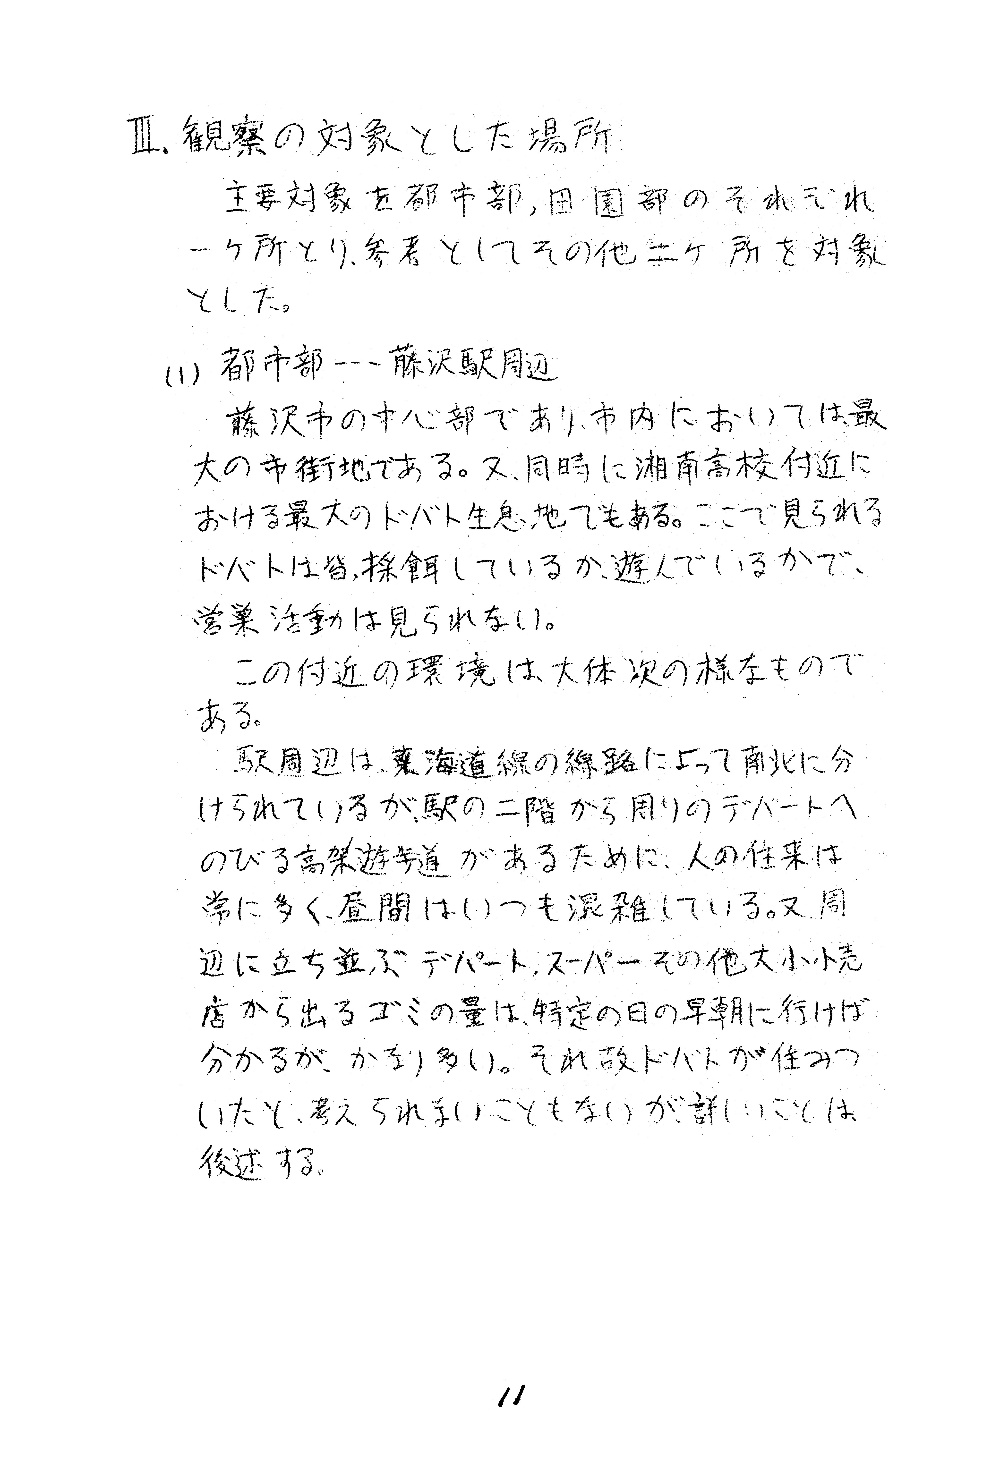 Ⅲ. 観察の対象とした場所
主要対象を都市部,田園部のそれぞれ
一ケ所とり、参考としてその他二ケ所を対象
とした。
(1) 都市部---藤沢駅周辺
藤沢市の中心部であり、市内においては最
大の市街地である。又、同時に湘南高校付近に
おける最大のドバト生息地でもある。ここで見られる
ドバトは皆、採餌しているか、遊んでいるかで、
営巣活動は見られない。
この付近の環境は、大体次の様なもので
ある。
駅周辺は、東海道線の線路によって南北に分
けられているが、駅の二階から周りのデパートへ
のびる高架遊歩道があるために、人の往来は
常に多く、昼間はいつも混雑している。又、周
辺に立ち並ぶデパート,スーパーその他大小小売
店から出るゴミの量は、特定の日の早朝に行けば
分かるが、かなり多い。それ故ドバトが住みつ
いたと、考えられないこともないが、詳しいことは
後述する。
11